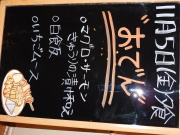 11月5日金夕食
"おでん"
○マグロ・サーモン
きゅうりの漬け和え
○白飯
○いちごムース